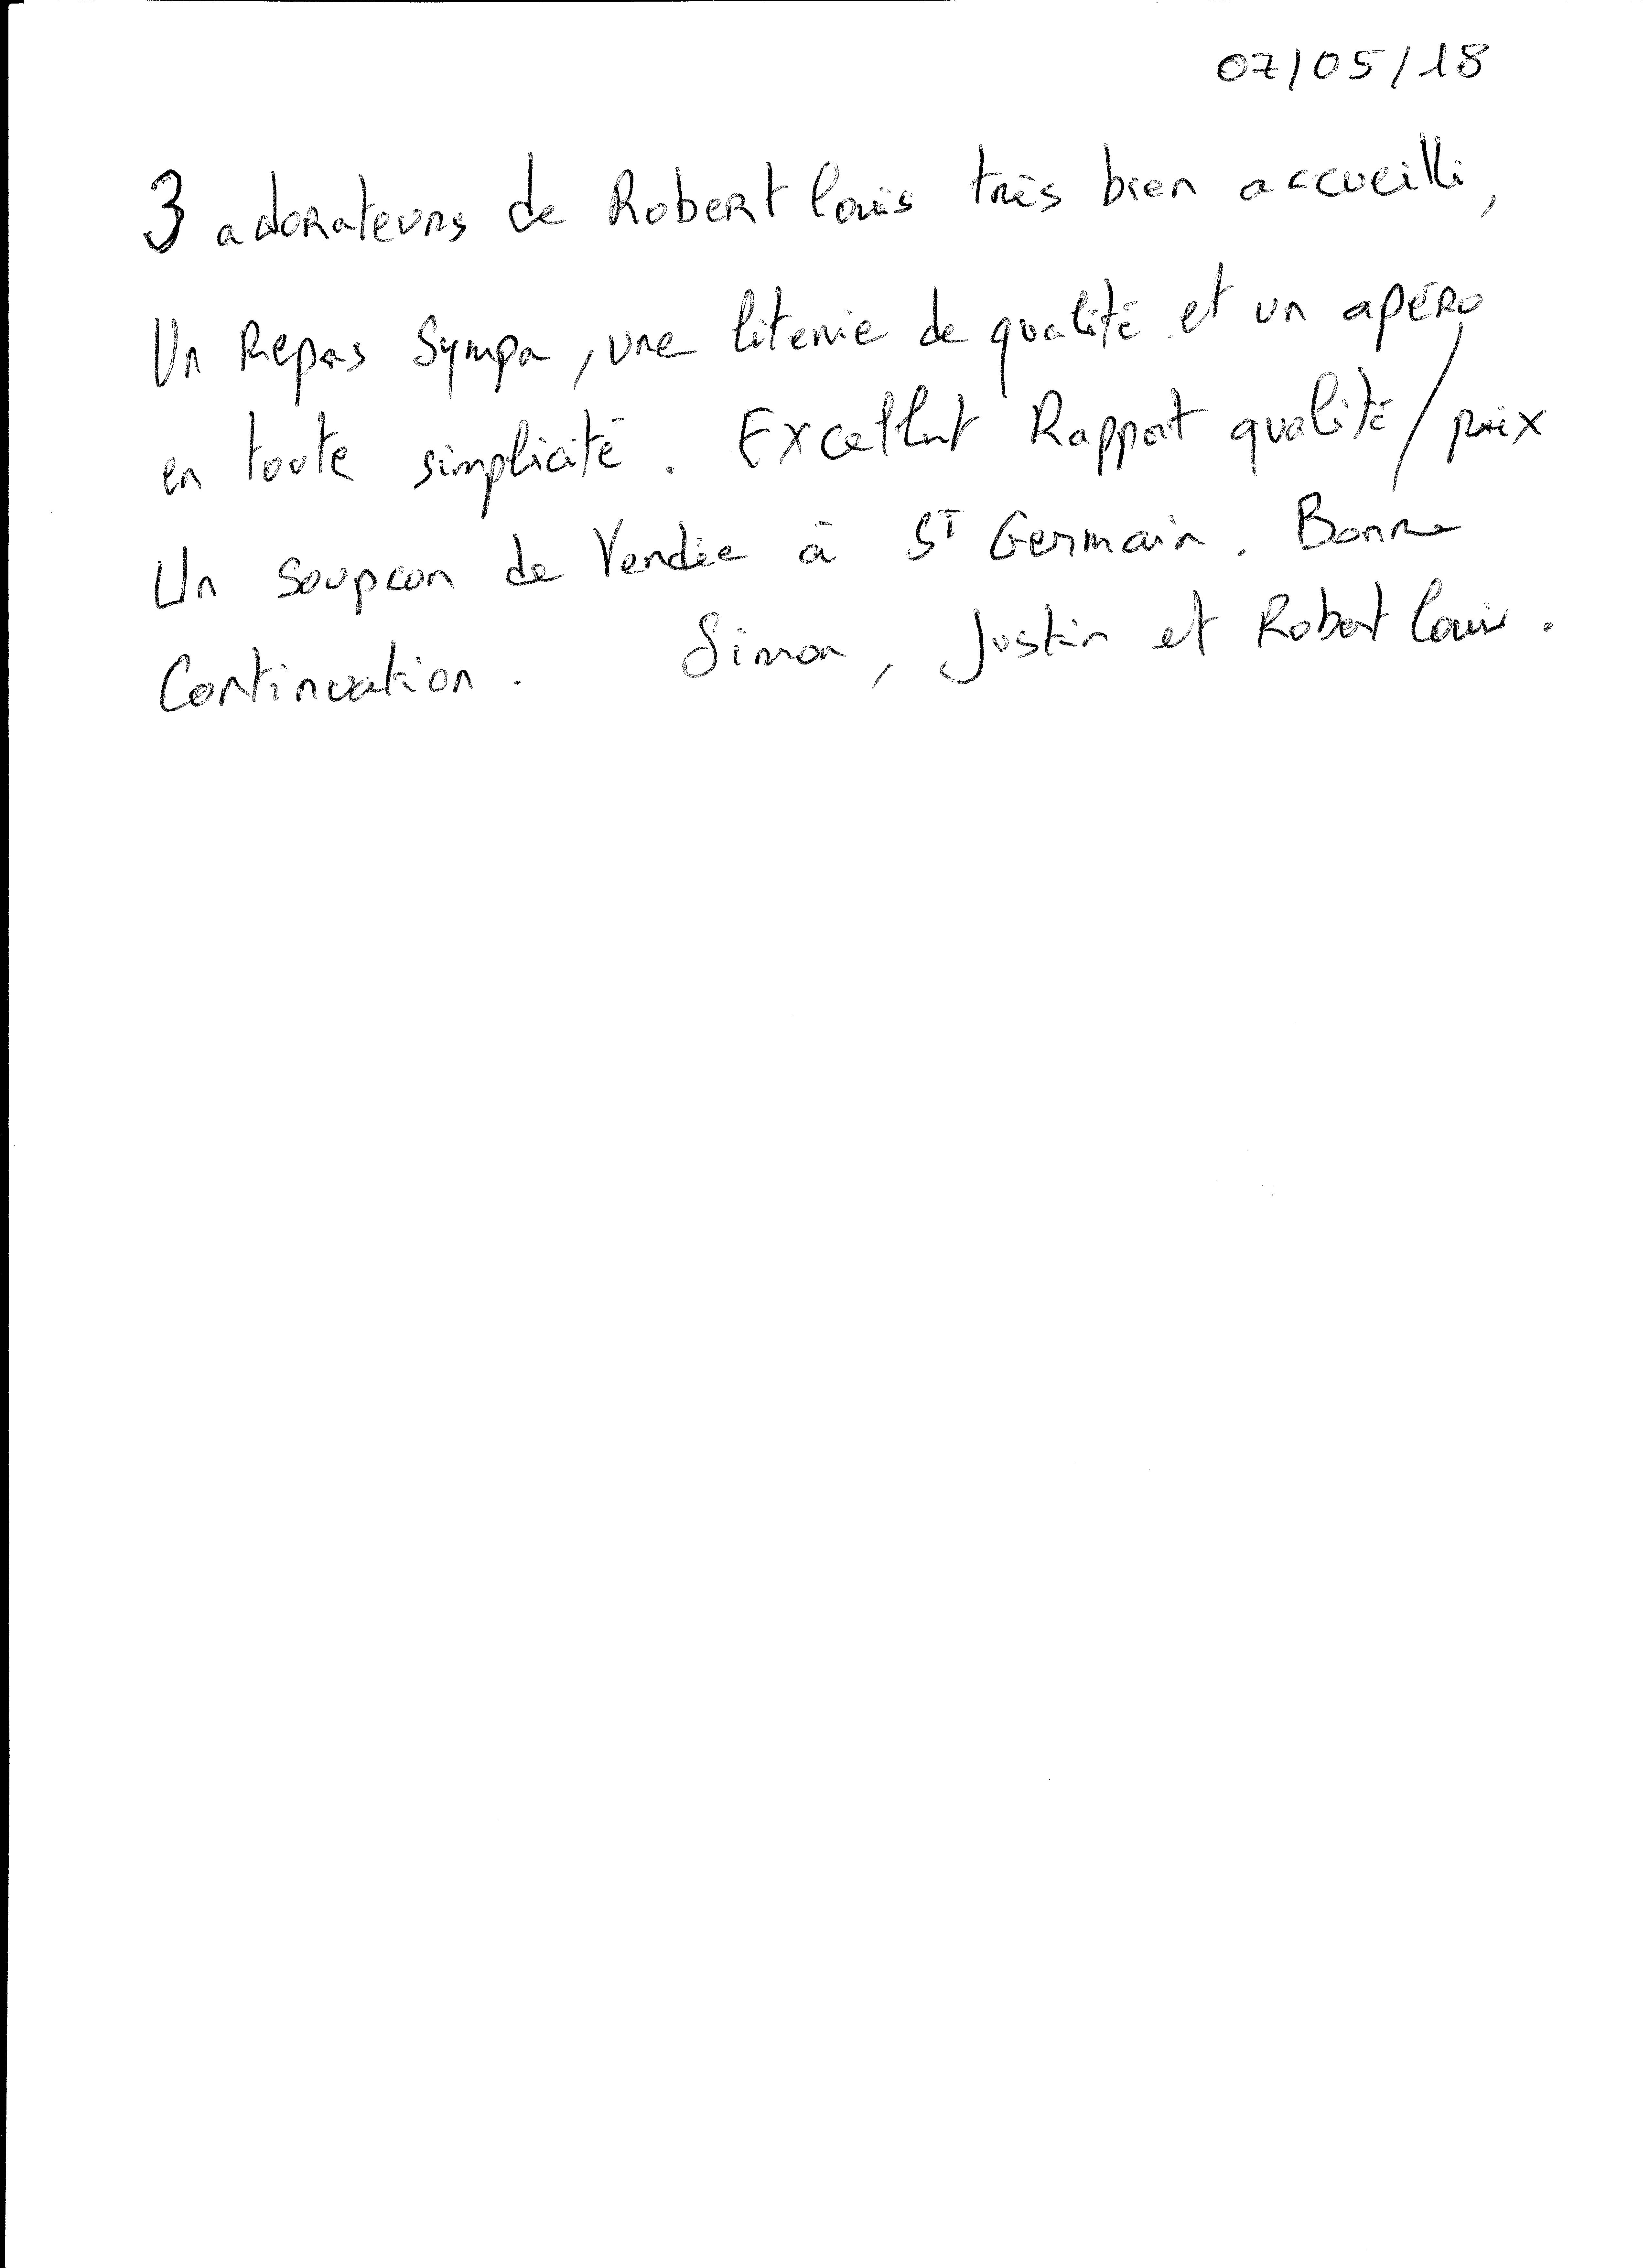 07/05/18
3 adorateurs de Robert Louis très bien accueilli,
Un Repas Sympa, une literie de qualité et un apéro
en toute simplicité. Excellent Rapport qualité/prix
Un soupcon de Vendée à ST Germain. Bonne
Continuation. Simon, Justin et Robert Louis.